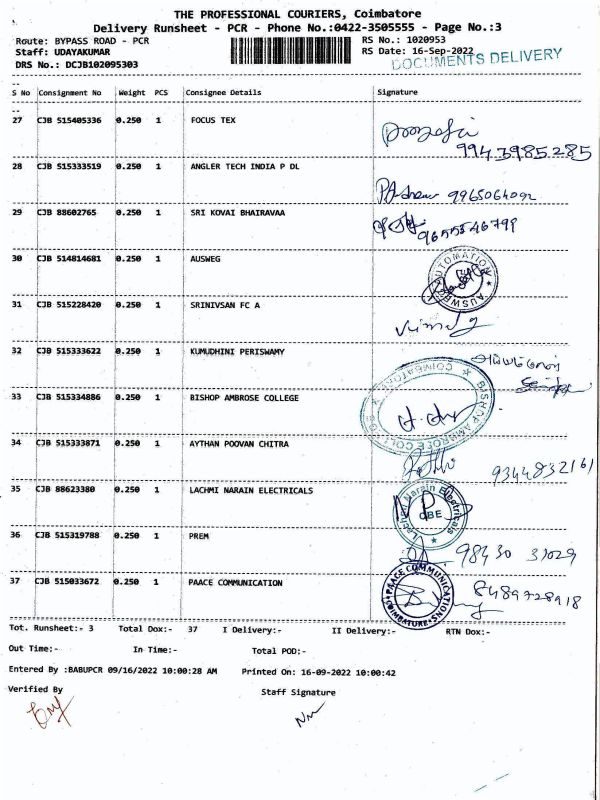 THE PROFESSIONAL COURIERS, Coimbatore
Delivery Runsheet - PCR - Phone No.:0422-3505555 - Page No.:3
Route: BYPASS ROAD - PCR RS No.: 1020953
Staff: UDAYAKUMAR RS Date: 16-Sep-2022
DRS No.: DCJB102095303 DOCUMENTS DELIVERY
S No Consignment No Weight PCS Consignee Details Signature
27 CJB 515405336 0.250 1 FOCUS TEX
9943985285
28 CJB 515333519 0.250 1 ANGLER TECH INDIA P DL
9965064092
29 CJB 88602765 0.250 1 SRI KOVAI BHAIRAVAA
9655546799
30 CJB 514814681 0.250 1 AUSWEG
AUSWEG AUTOMATION
31 CJB 515228420 0.250 1 SRINIVSAN FC A
32 CJB 515333622 0.250 1 KUMUDHINI PERISWAMY
33 CJB 515334886 0.250 1 BISHOP AMBROSE COLLEGE
BISHOP AMBROSE COLLEGE COIMBATORE
34 CJB 515333871 0.250 1 AYTHAN POOVAN CHITRA
9344832161
35 CJB 88623380 0.250 1 LACHMI NARAIN ELECTRICALS
Lachmi Narain Electricals CBE
36 CJB 515319788 0.250 1 PREM
98430 31029
37 CJB 515033672 0.250 1 PAACE COMMUNICATION
PAACE COMMUNICATIONS COIMBATORE
8489728918
Tot. Runsheet:- 3 Total Dox:- 37 I Delivery:- II Delivery:- RTN Dox:-
Out Time:- In Time:- Total POD:-
Entered By :BABUPCR 09/16/2022 10:00:28 AM Printed On: 16-09-2022 10:00:42
Verified By Staff Signature